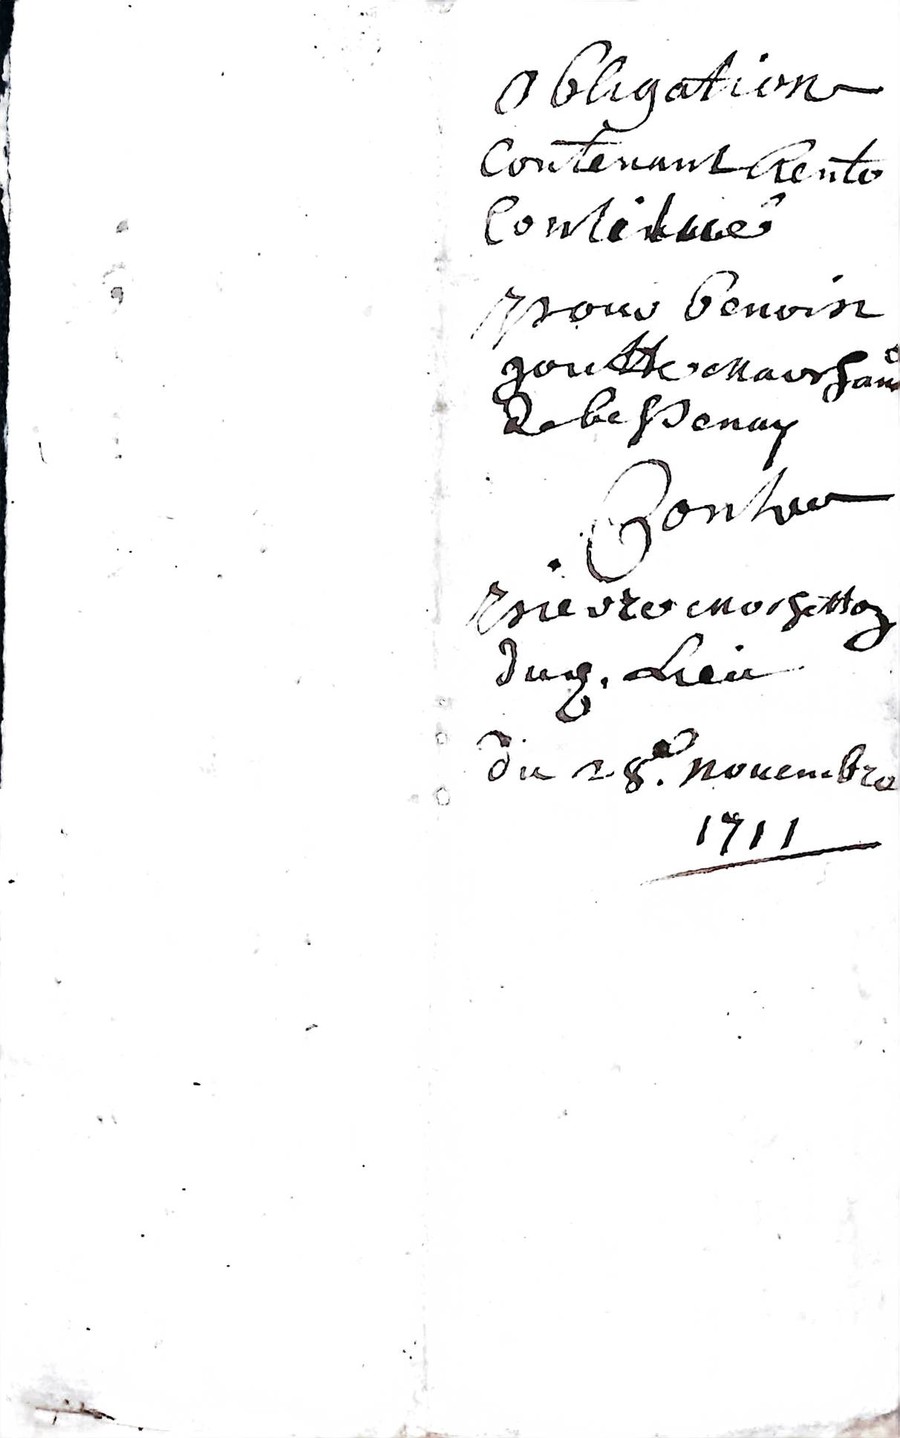 Obligation
Contenant Rente
Constituée
pour benoist
goutte marchand
de bessenay
Contre
pierre
dud. Lieu
du 28e. novembre
1711